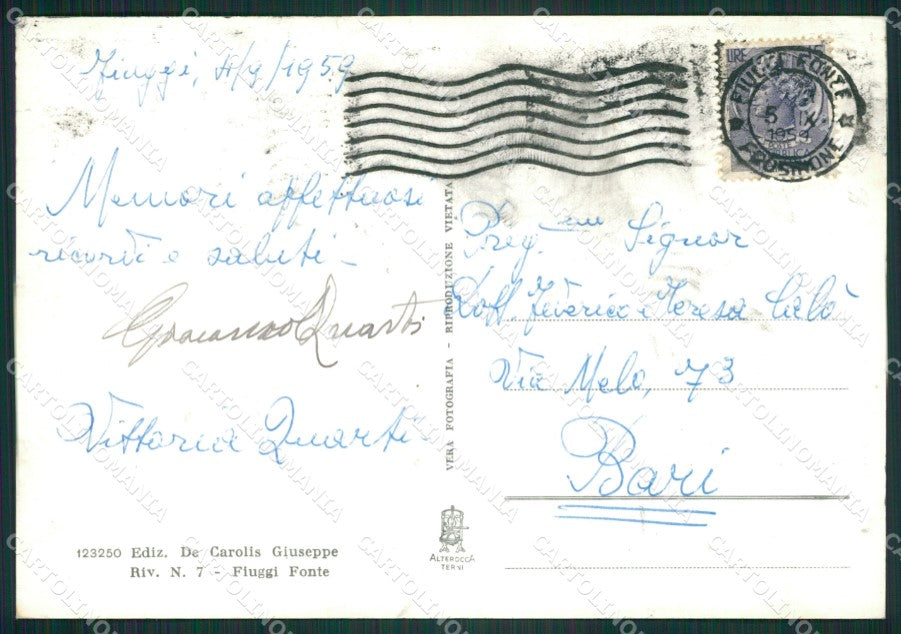 Fiuggi, 4/9/1959
Memori affettuosi
ricordi e saluti -
Quarti
Vittoria Quarti
123250 Ediz. De Carolis Giuseppe
Riv. N. 7 - Fiuggi Fonte
VERA FOTOGRAFIA - RIPRODUZIONE VIETATA
ALTEROCCA
TERNI
LIRE 15
FIUGGI FONTE
5 IX
1959
FROSINONE
Preg. Signor
Dott. Federico e Teresa
Via Melo, 73
Bari
CARTOLINOMANIA